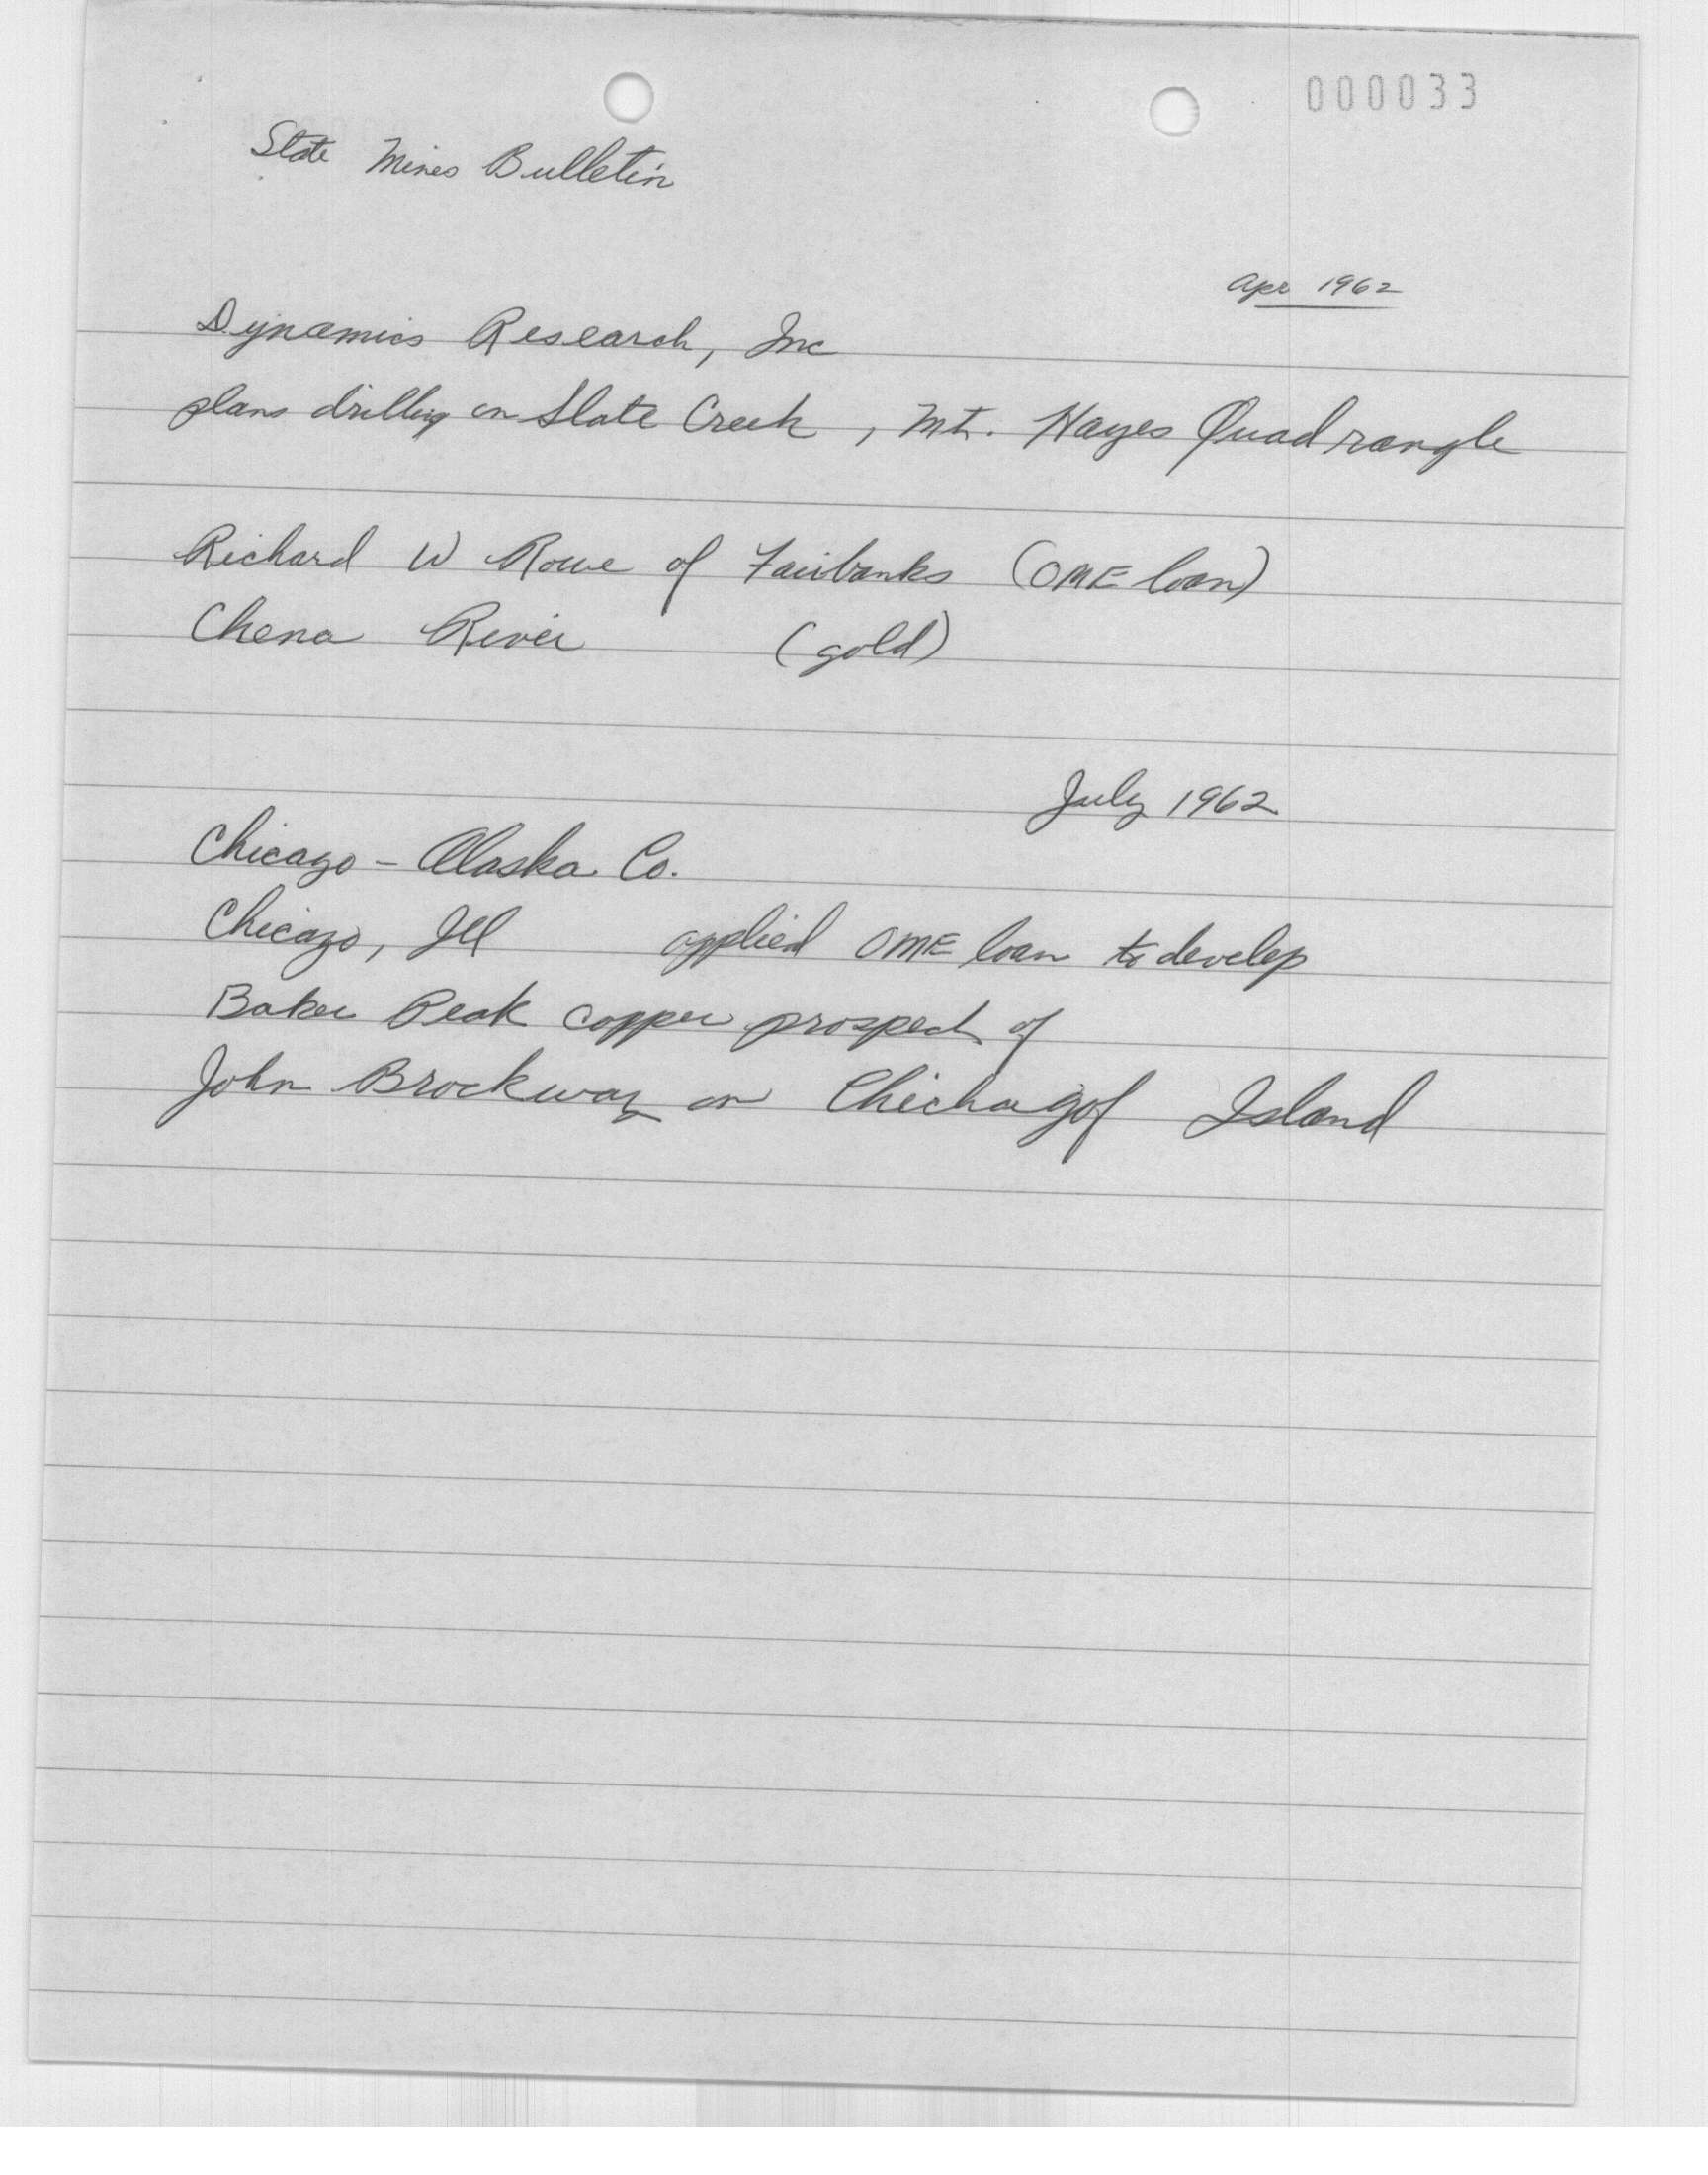 000033
State Mines Bulletin
Apr 1962
Dynamics Research, Inc
plans drilling on Slate Creek, Mt. Hayes Quadrangle
Richard W Rowe of Fairbanks (OME loan)
Chena River (gold)
July 1962
Chicago - Alaska Co.
Chicago, Ill applied OME loan to develop
Baker Peak copper prospect of
John Brockway on Chichagof Island